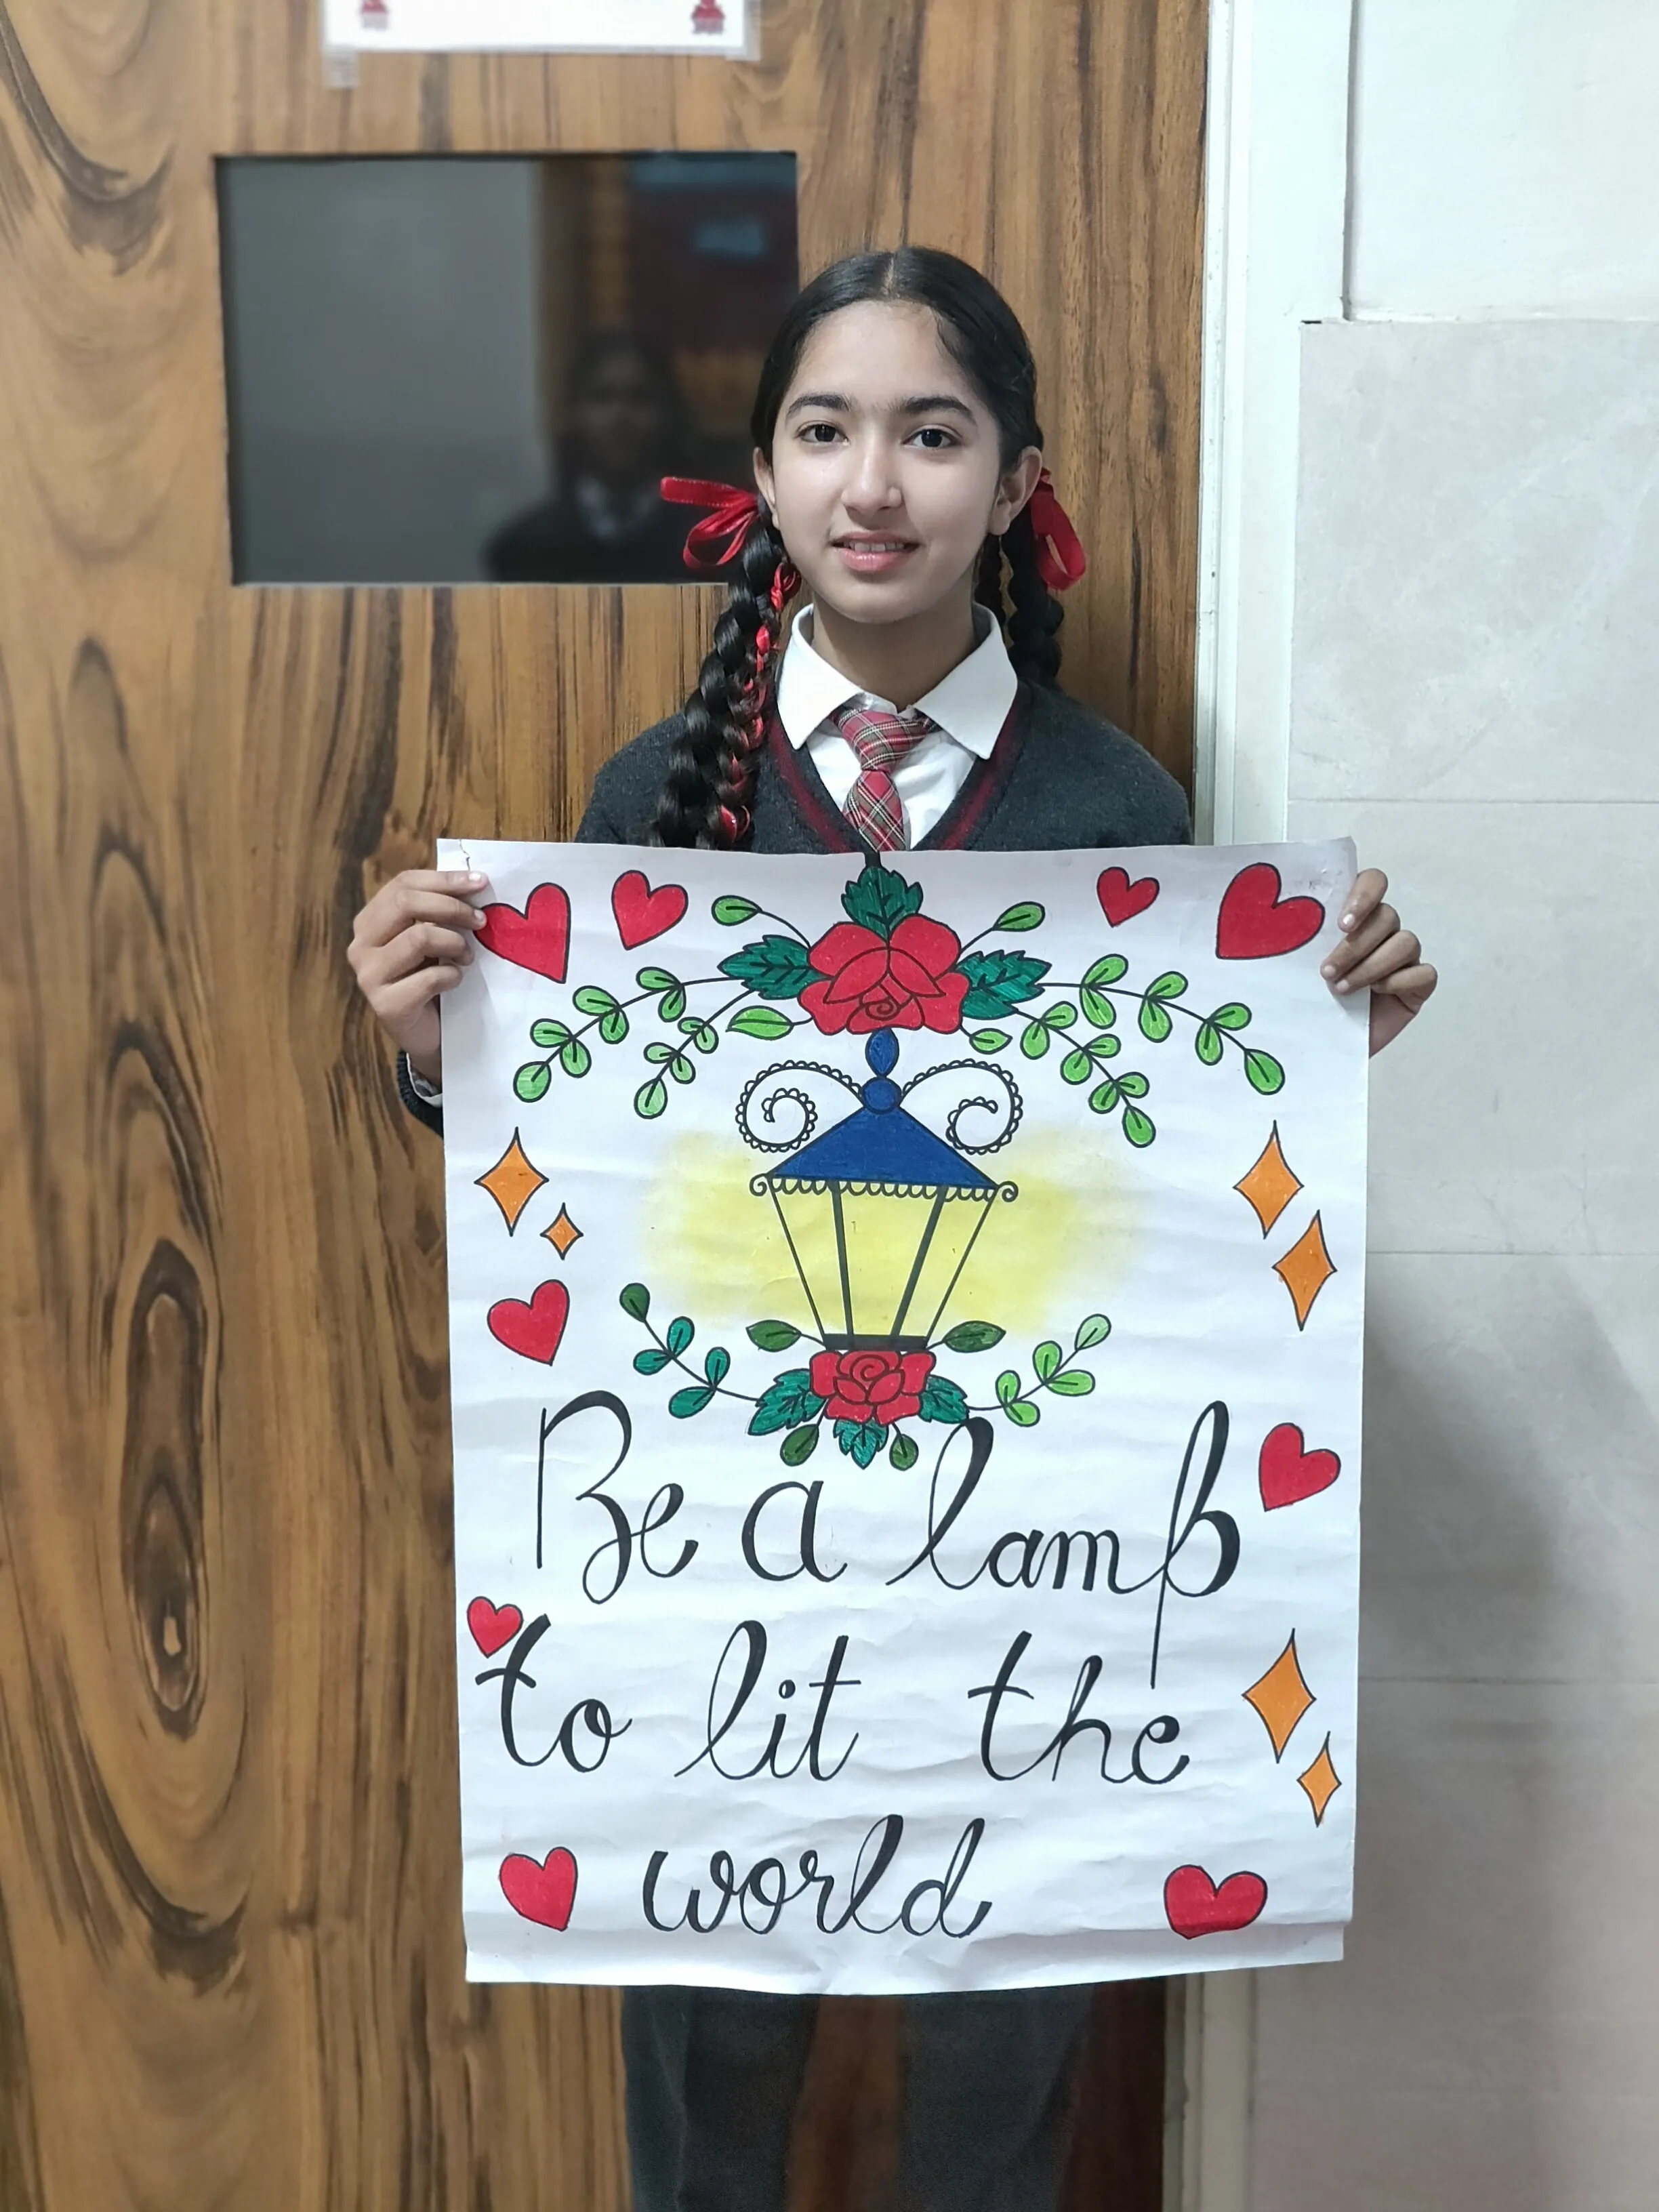 Be a lamp
to lit the
world